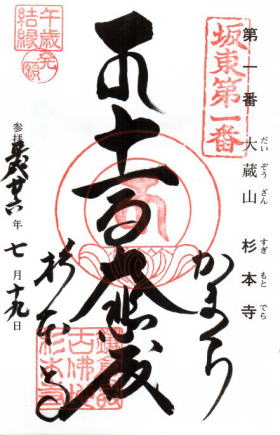 坂東第一番
第一番 大蔵山 杉本寺
だいぞうざん すぎもとでら
かまくら
十一面大悲殿
杉本寺
午歳
結縁
発願
参拝 平成廿六年 七月十九日